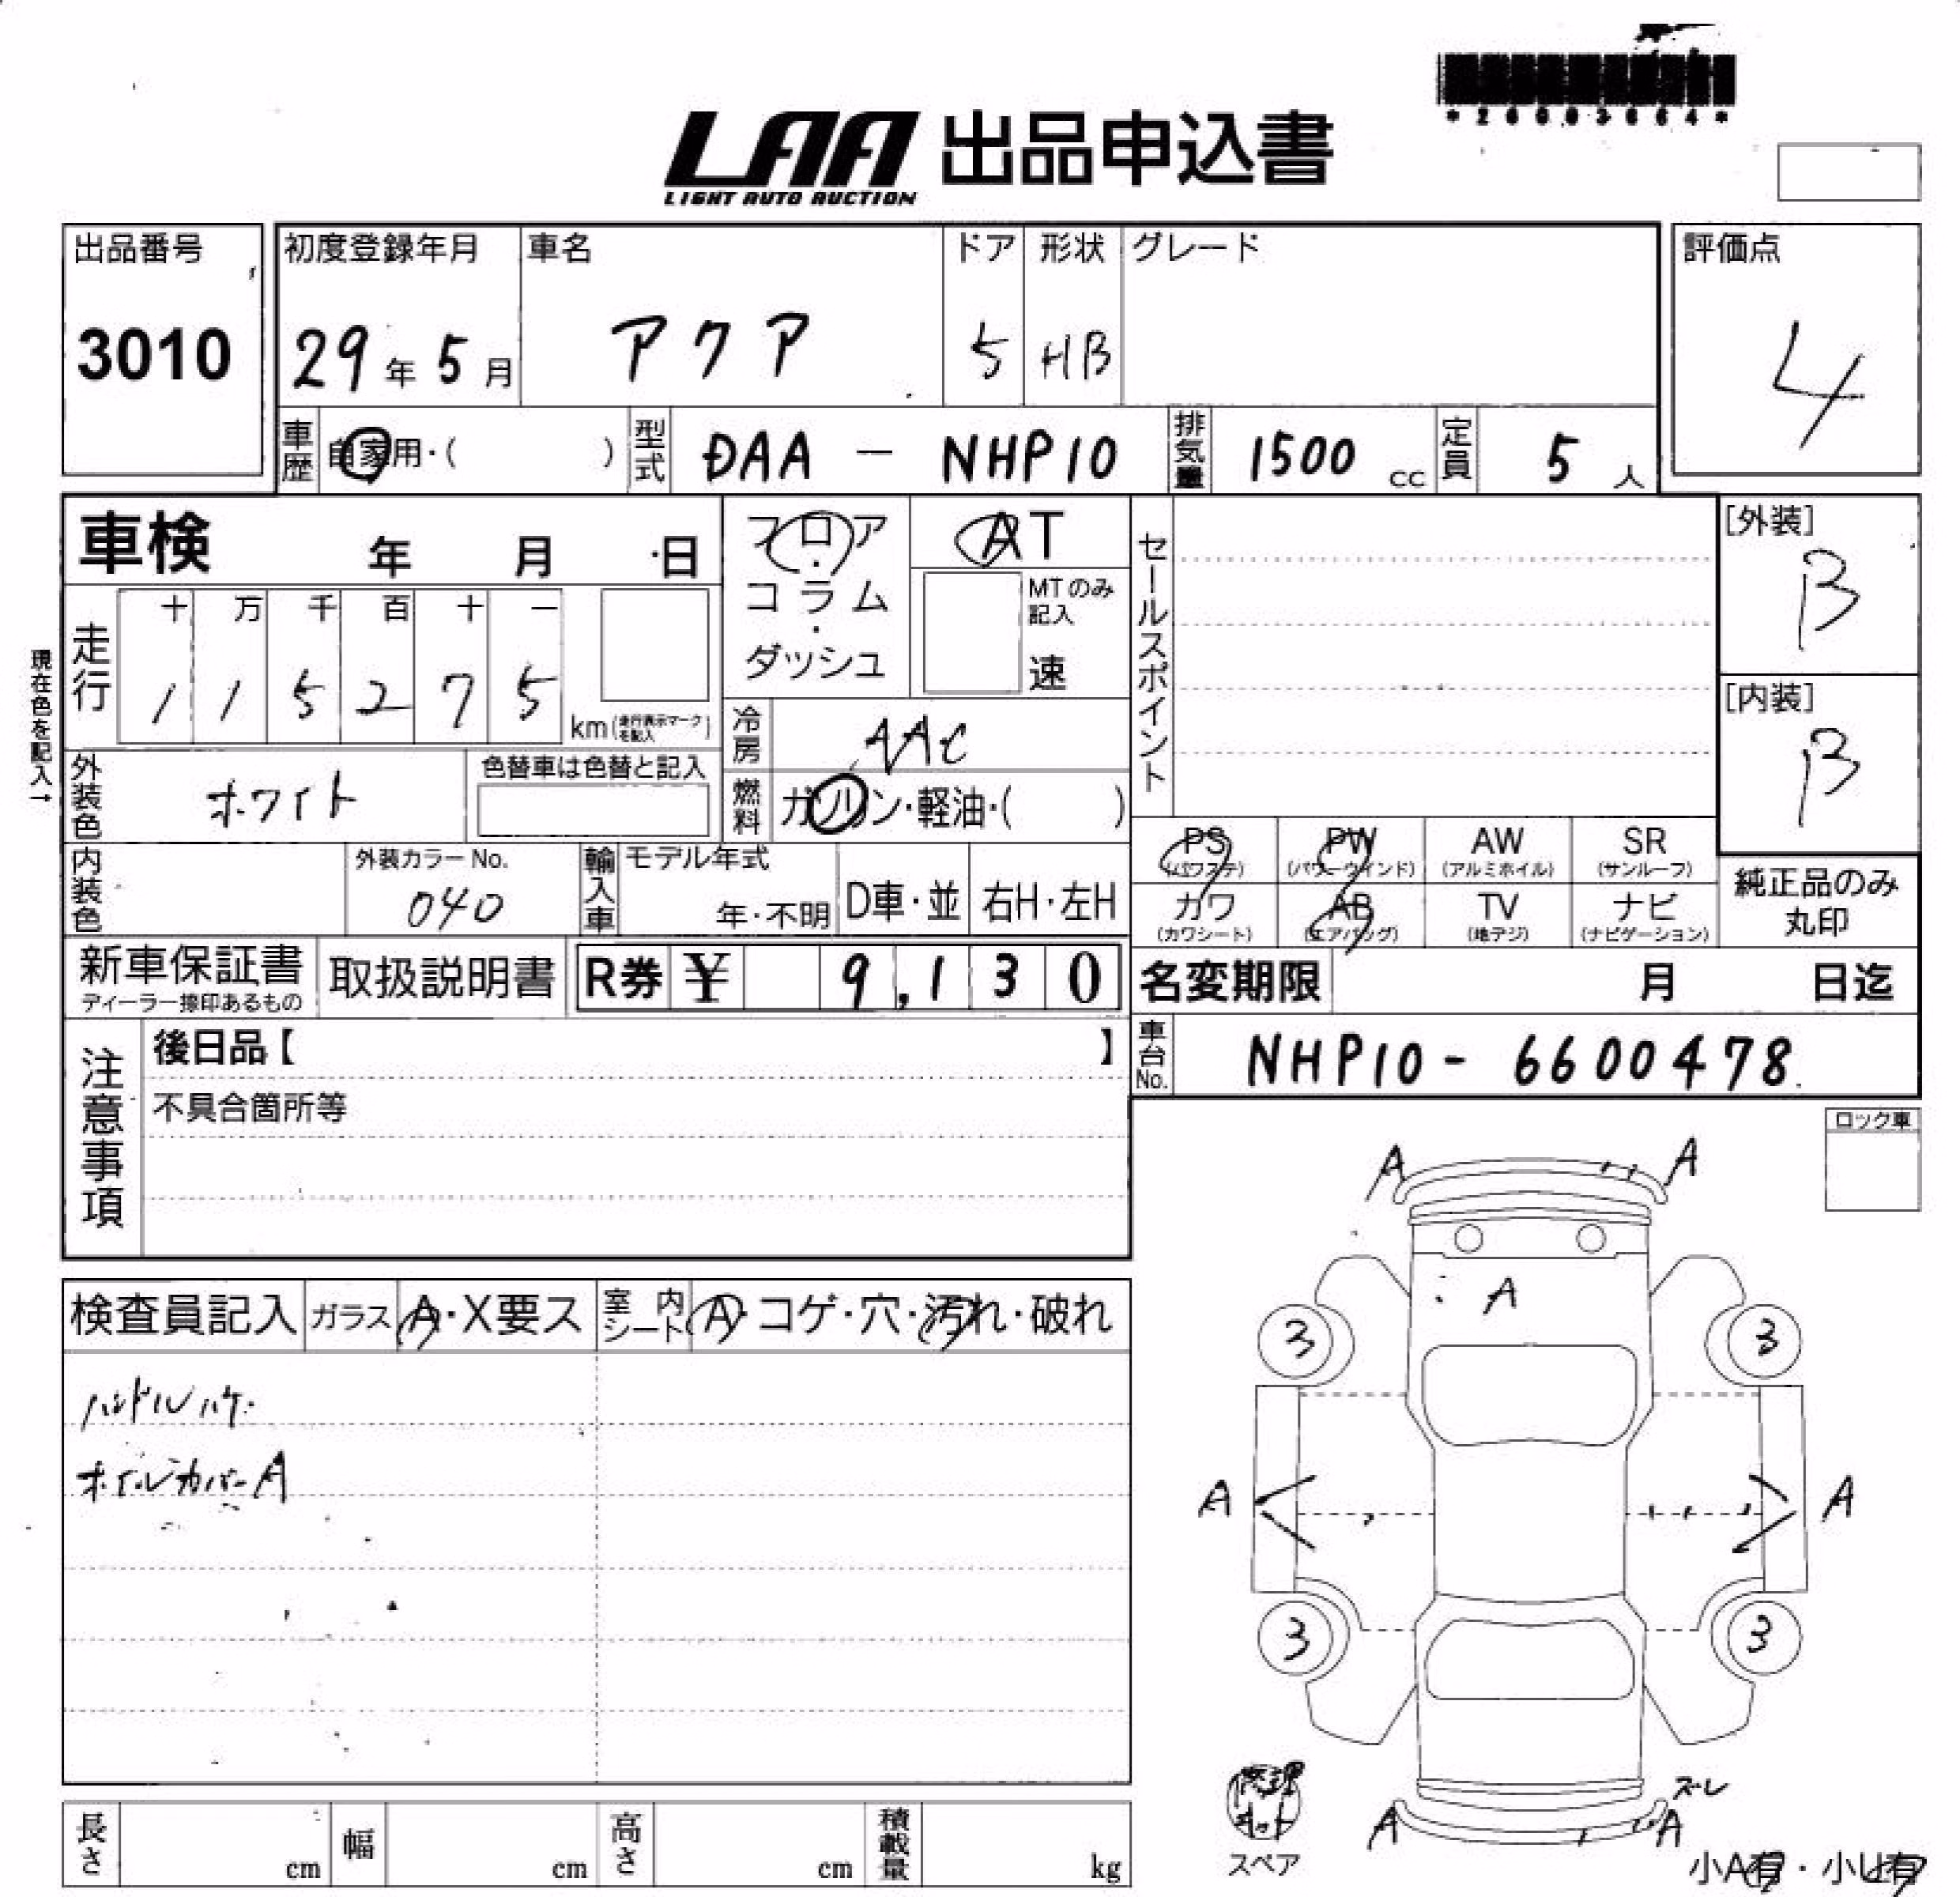 *26003664*
LAA 出品申込書
LIGHT AUTO AUCTION
出品番号 初度登録年月 車名 ドア 形状 グレード 評価点
3010 29年 5月 アクア 5 HB 4
車歴 自家用・( ) 型式 DAA - NHP10 排気量 1500 cc 定員 5 人
車検 年 月 日 フロア・コラム・ダッシュ AT セールスポイント [外装]
B
MTのみ記入
速
現在色を記入→
走行 十 万 千 百 十 一
1 1 5 2 7 5 km(走行表示マークを記入)
[内装]
B
冷房 AAC
外装色 ホワイト 色替車は色替と記入 燃料 ガソリン・軽油・( )
PS (パワステ) PW (パワーウインド) AW (アルミホイル) SR (サンルーフ)
カワ (カワシート) AB (エアバッグ) TV (地デジ) ナビ (ナビゲーション)
純正品のみ
丸印
内装色 外装カラーNo. 040 輸入車 モデル年式 年・不明 D車・並 右H・左H
新車保証書 ディーラー捺印あるもの 取扱説明書 R券 ¥ 9,130 名変期限 月 日迄
車台No. NHP10-6600478
注意事項 後日品【 】
不具合箇所等
ロック車
A A
A
3 3
A A
3 3
ズレ
A A
検査員記入 ガラス A・X要ス 室内シート A・コゲ・穴・汚れ・破れ
ハンドルハゲ
ホイルカバーA
修理キット
スペア
小A有・小U有
長さ cm 幅 cm 高さ cm 積載量 kg